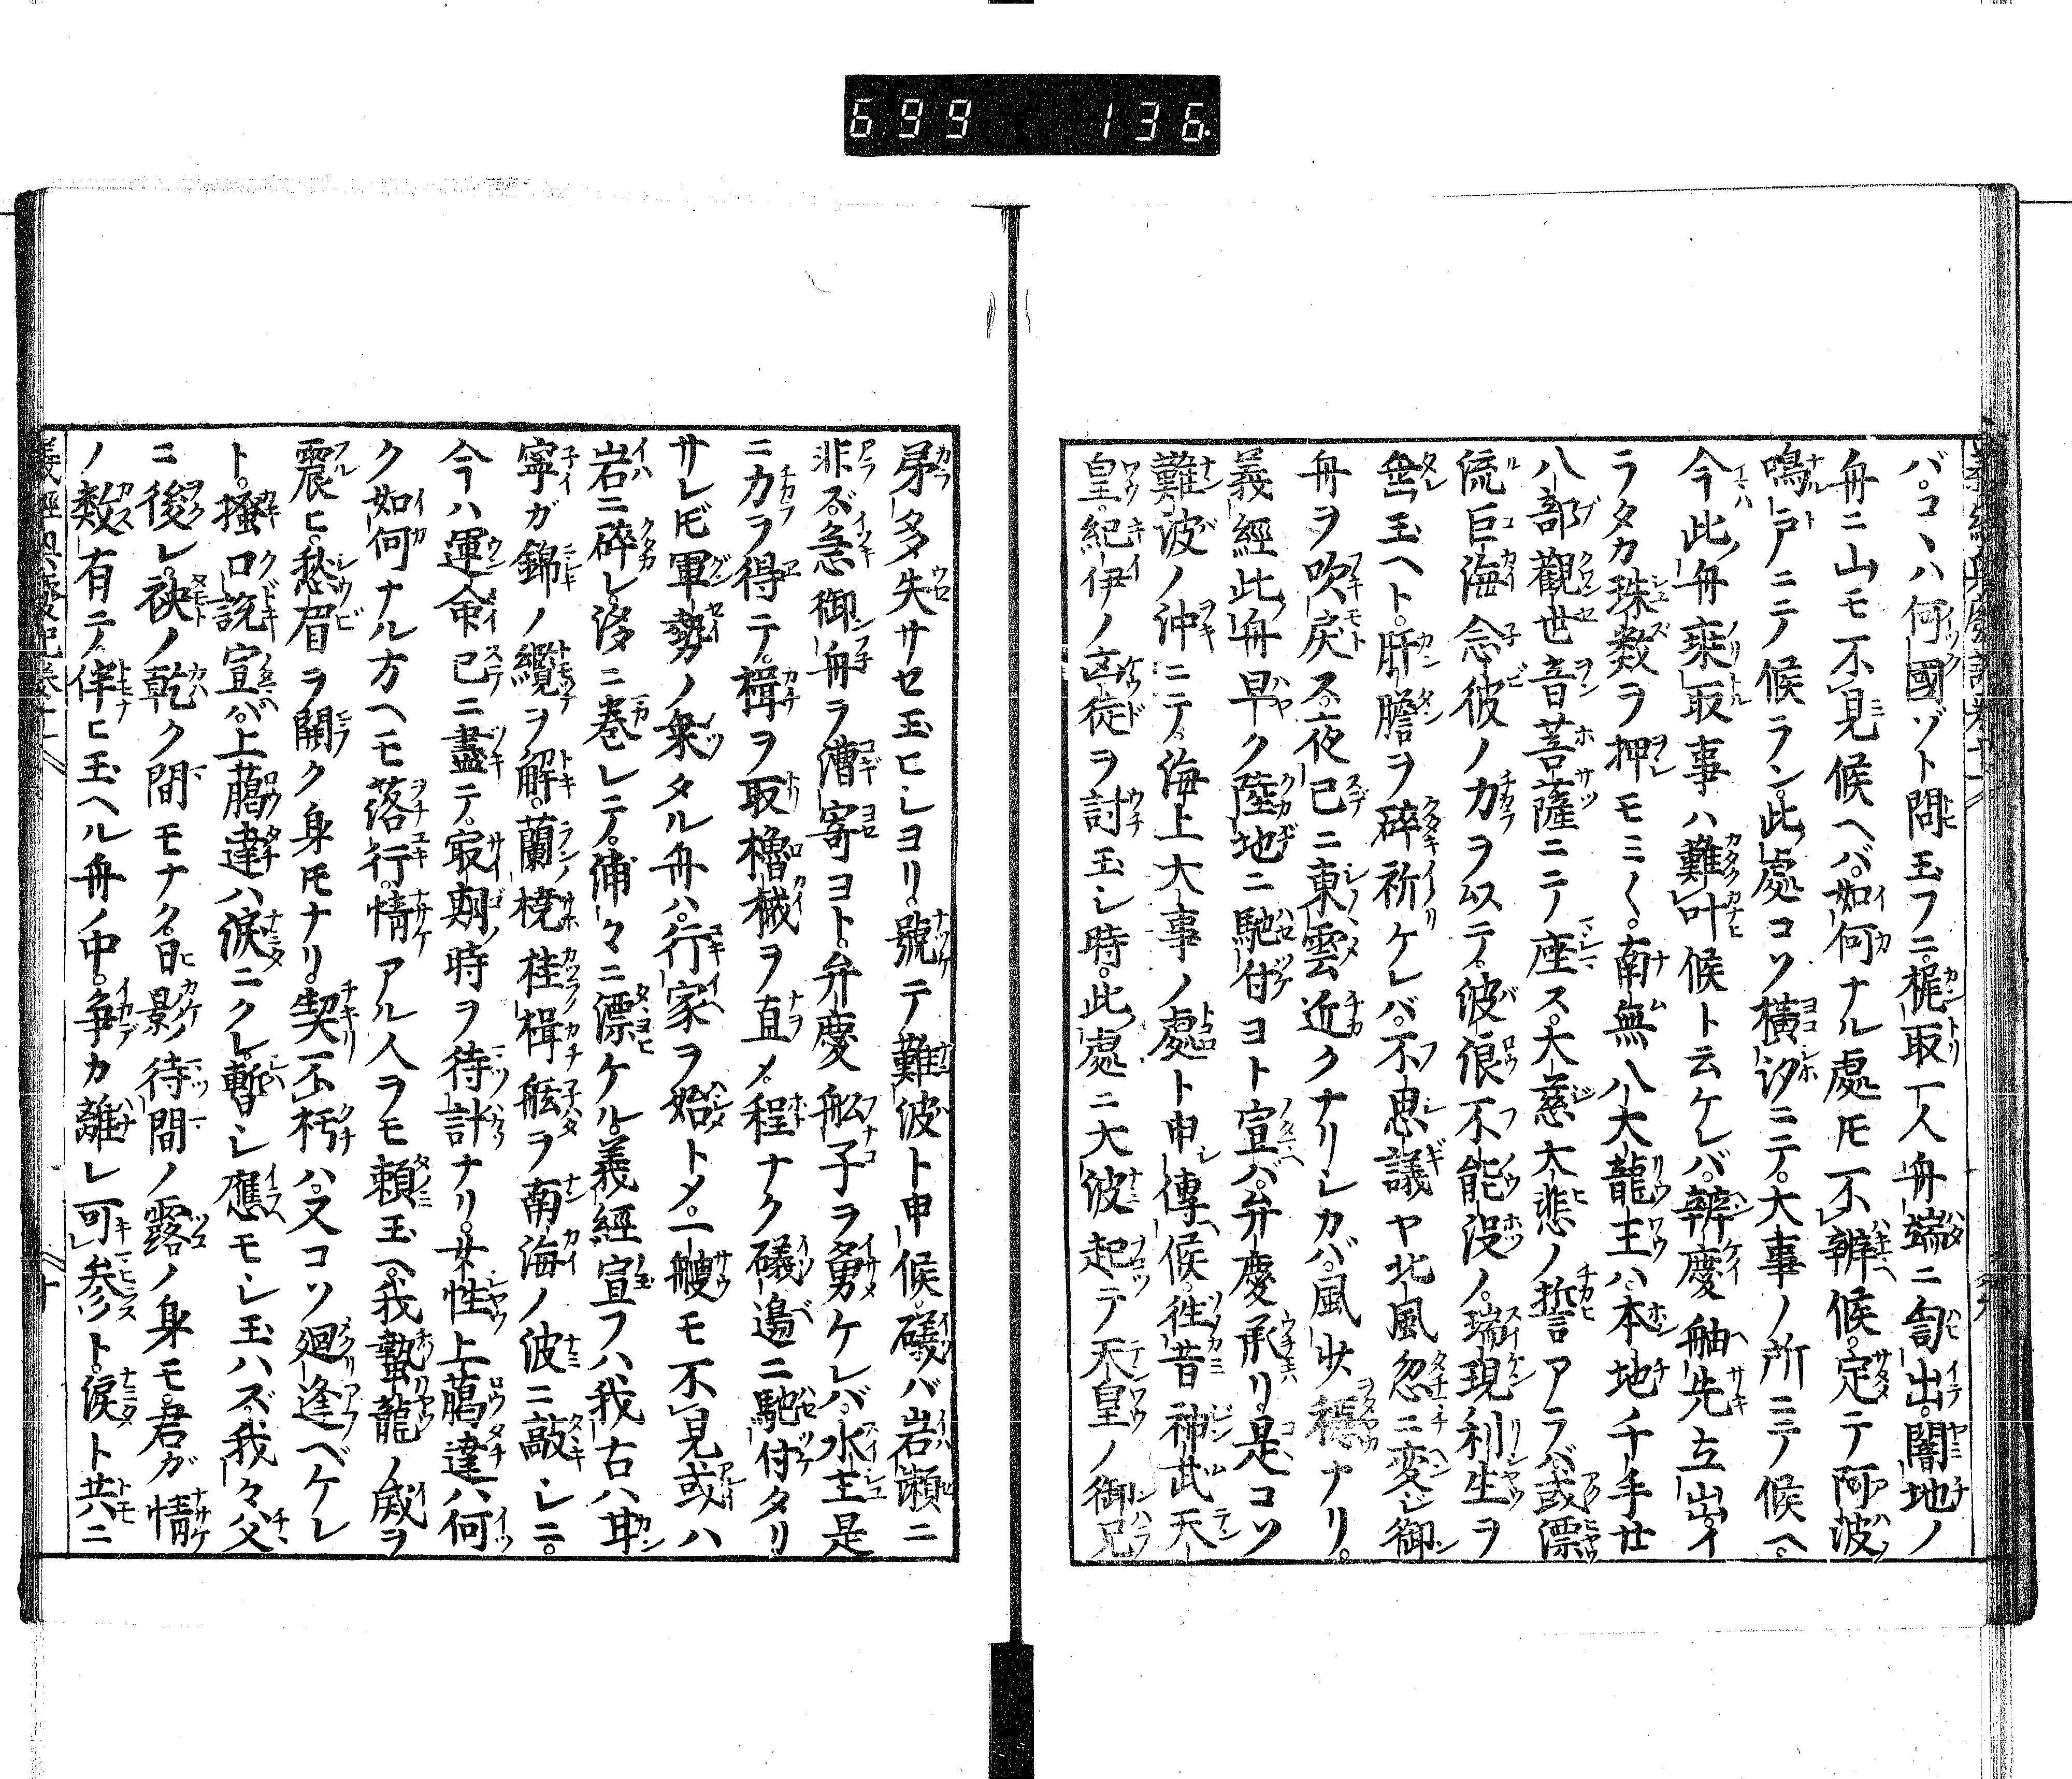 699 136.
バ。コヽハ何國ゾト問玉フニ。梶取一人舟端ニ匐出。闇地ノ
舟ニ山モ不見候ヘバ。如何ナル處モ不辨候。定テ阿波ノ
鳴戸ニテ候ラン。此處コソ橫汐ニテ。大事ノ所ニテ候ヘ。
今此舟乗取事ハ難叶候ト云ケレバ。辨慶舳先立出。イ
ラタカ珠数ヲ押モミ〱。南無八大龍王ハ。本地千手廿
八部觀世音菩薩ニテ座ス。大慈大悲ノ誓アラバ。或漂
流巨海念彼ノカヲ以テ。波浪不能没ノ。瑞現利生ヲ
垂玉ヘト。肝膽ヲ碎祈ケレバ。不思議ヤ北風忽ニ変ジ御
舟ヲ吹戻ス。夜已ニ東雲近クナリシカバ。風状穏ナリ。
義經此舟早ク陸地ニ馳付ヨト宣バ。弁慶承リ。是コソ
難波ノ沖ニテ。海上大事ノ處ト申傳候。徃昔神武天
皇。紀伊ノ凶徒ヲ討玉シ時。此處ニ大波起テ天皇ノ御兄
弟多ク失サセ玉ヒシヨリ。號テ難波ト申候。礒バ岩瀬ニ
非ズ。急御舟ヲ漕寄ヨト。弁慶舩子ヲ勇ケレバ。水主是
ニカヲ得テ。楫ヲ取櫓械ヲ直メ。程ナク礒邊ニ馳付タリ
サレ𪜈軍勢ノ乗タル舟ハ。行家ヲ始トメ。一艘モ不見或ハ
岩ニ碎レ。浪ニ巻レテ。浦々ニ漂ケル。義經宣フハ。我古ハ甘
寧ガ錦ノ纜ヲ解。蘭橈桂楫舷ヲ南海ノ波ニ敲シニ。
今ハ運命已ニ盡テ。㝡期時ヲ待計ナリ。女性上﨟達ハ何
ク如何ナル方ヘモ落行。情アル人ヲモ頼玉ヘ。我蟄龍ノ威ヲ
震ヒ。愁眉ヲ開ク身𪜈ナリ。契不朽ハ。又コソ廻逢ベケレ
ト。搔口說宣バ。上﨟達ハ涙ニクレ。暫シ應モシ玉ハズ。我々父
ニ後レ。袂ノ乾ク間モナク。日影待間ノ露ノ身モ。君ガ情
ノ数有テ。伴ヒ玉ヘル舟ノ中。争カ離レ可参ト。涙ト共ニ